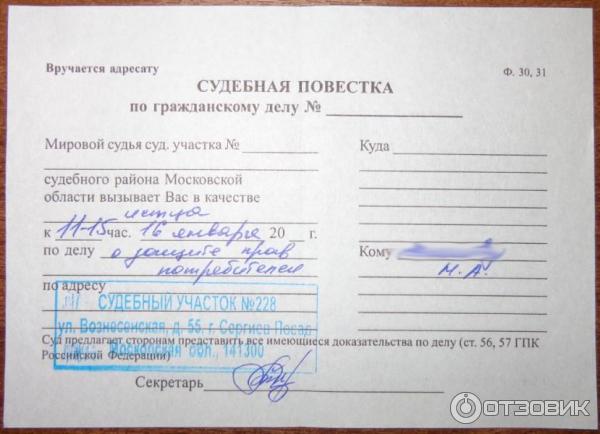 Вручается адресату
Ф. 30, 31
СУДЕБНАЯ ПОВЕСТКА
по гражданскому делу №
Мировой судья суд. участка №
судебного района Московской
области вызывает Вас в качестве
истца
к 11-15 час. 16 января 20 г.
по делу о защите прав
потребителей
по адресу
Куда
Кому
М. А.
СУДЕБНЫЙ УЧАСТОК №228
ул. Вознесенская, д. 55, г. Сергиев Посад
Московская обл., 141300
Суд предлагает сторонам представить все имеющиеся доказательства по делу (ст. 56, 57 ГПК
Российской Федерации)
Секретарь
ОТЗОВИК